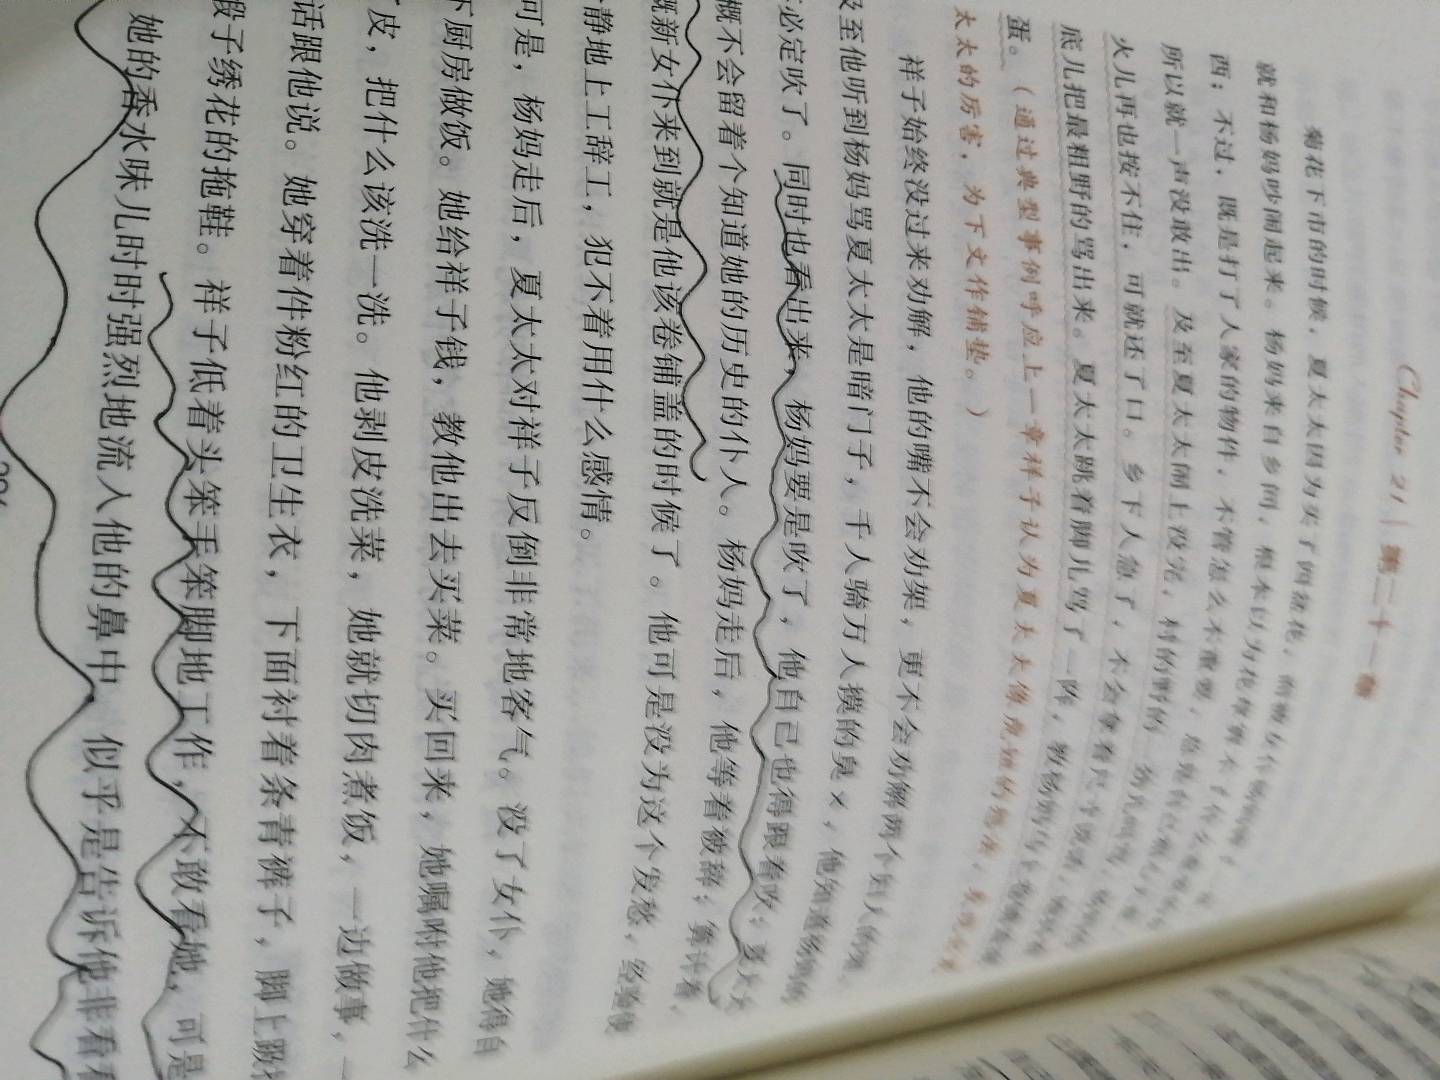 Chapter 21 | 第二十一章
菊花下市的时候，夏太太因为买了四盆花，而被女仆
就和杨妈吵闹起来。杨妈来自乡间，根本以为花草算不了什么
西；不过，既是打了人家的物件，不管怎么不重要，总是自己
所以就一声没敢出。及至夏太太闹上没完，村的野的一劲儿
火儿再也按不住，可就还了口。乡下人急了，不会拿着尺寸说话，
底儿把最粗野的骂出来。夏太太跳着脚儿骂了一阵，教杨妈马上卷铺盖
蛋。（通过典型事例呼应上一章祥子认为夏太太像虎妞的地方，
太太的厉害，为下文作铺垫。）
祥子始终没过来劝解，他的嘴不会劝架，更不会劝解两个妇人的架
及至他听到杨妈骂夏太太是暗门子，千人骑万人摸的臭×，他知道杨妈的
必定吹了。同时也看出来，杨妈要是吹了，他自己也得跟着吹；夏太太
概不会留着个知道她的历史的仆人。杨妈走后，他等着被辞；算计着，
概新女仆来到就是他该卷铺盖的时候了。他可是没为这个发愁，经验使
静地上工辞工，犯不着用什么感情。
可是，杨妈走后，夏太太对祥子反倒非常地客气。没了女仆，她得自
下厨房做饭。她给祥子钱，教他出去买菜。买回来，她嘱咐他把什么
皮，把什么该洗一洗。他剥皮洗菜，她就切肉煮饭，一边做事，一
话跟他说。她穿着件粉红的卫生衣，下面衬着条青裤子，脚上趿
缎子绣花的拖鞋。祥子低着头笨手笨脚地工作，不敢看她，可是
她的香水味儿时时强烈地流入他的鼻中，似乎是告诉他非看看